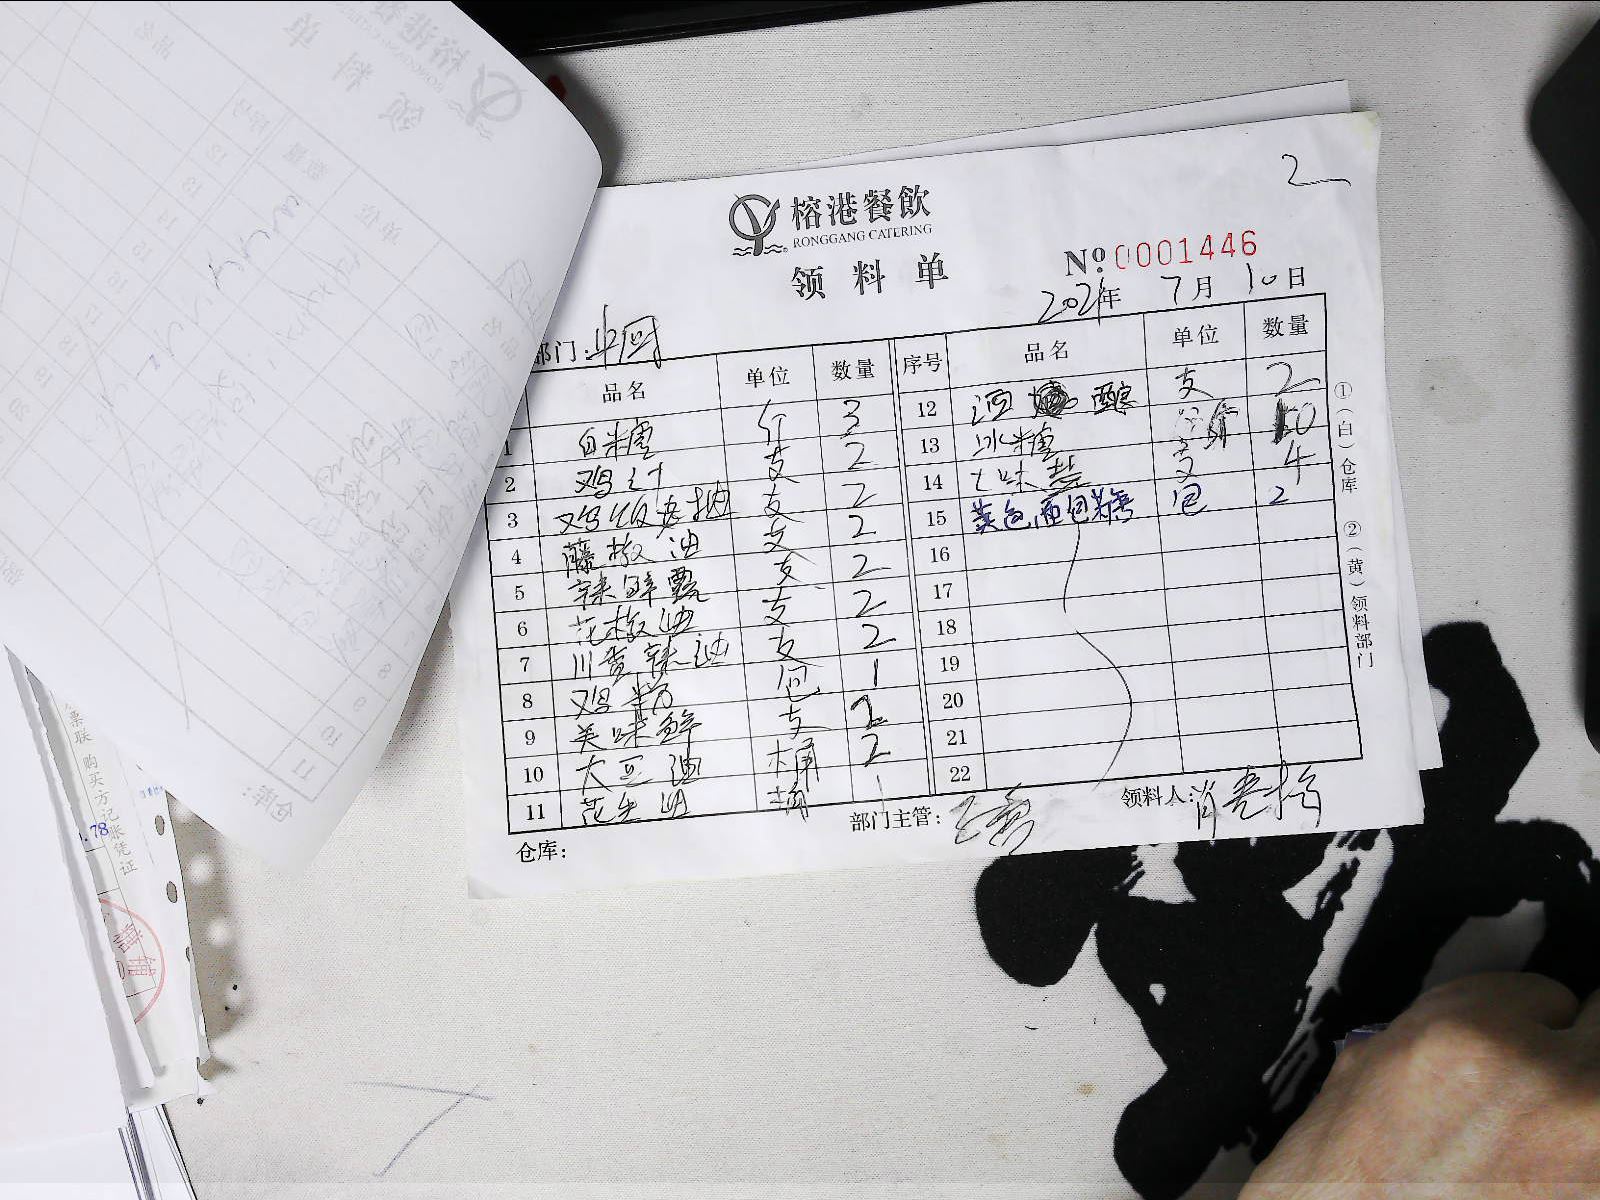 2
榕港餐飲
RONGGANG CATERING
领料单
No. 0001446
2021年 7月 10日
部门: 中厨
品名 单位 数量 序号 品名 单位 数量
1 白糖 斤 3
2 鸡汁 支 2
3 鸡饭老抽 支 2
4 藤椒油 支 2
5 辣鲜露 支 2
6 花椒油 支 2
7 川香辣油 支 2
8 鸡粉 包 1
9 美味鲜 支 2
10 大豆油 桶 2
11 花生油 桶 1
12 酒酿 支 2
13 冰糖 斤 10
14 七味 支 4
15 黄色面包糠 包 2
16
17
18
19
20
21
22
①（白）仓库 ②（黄）领料部门
仓库: 部门主管: 领料人: 肖
票联 购买方记账凭证
.78